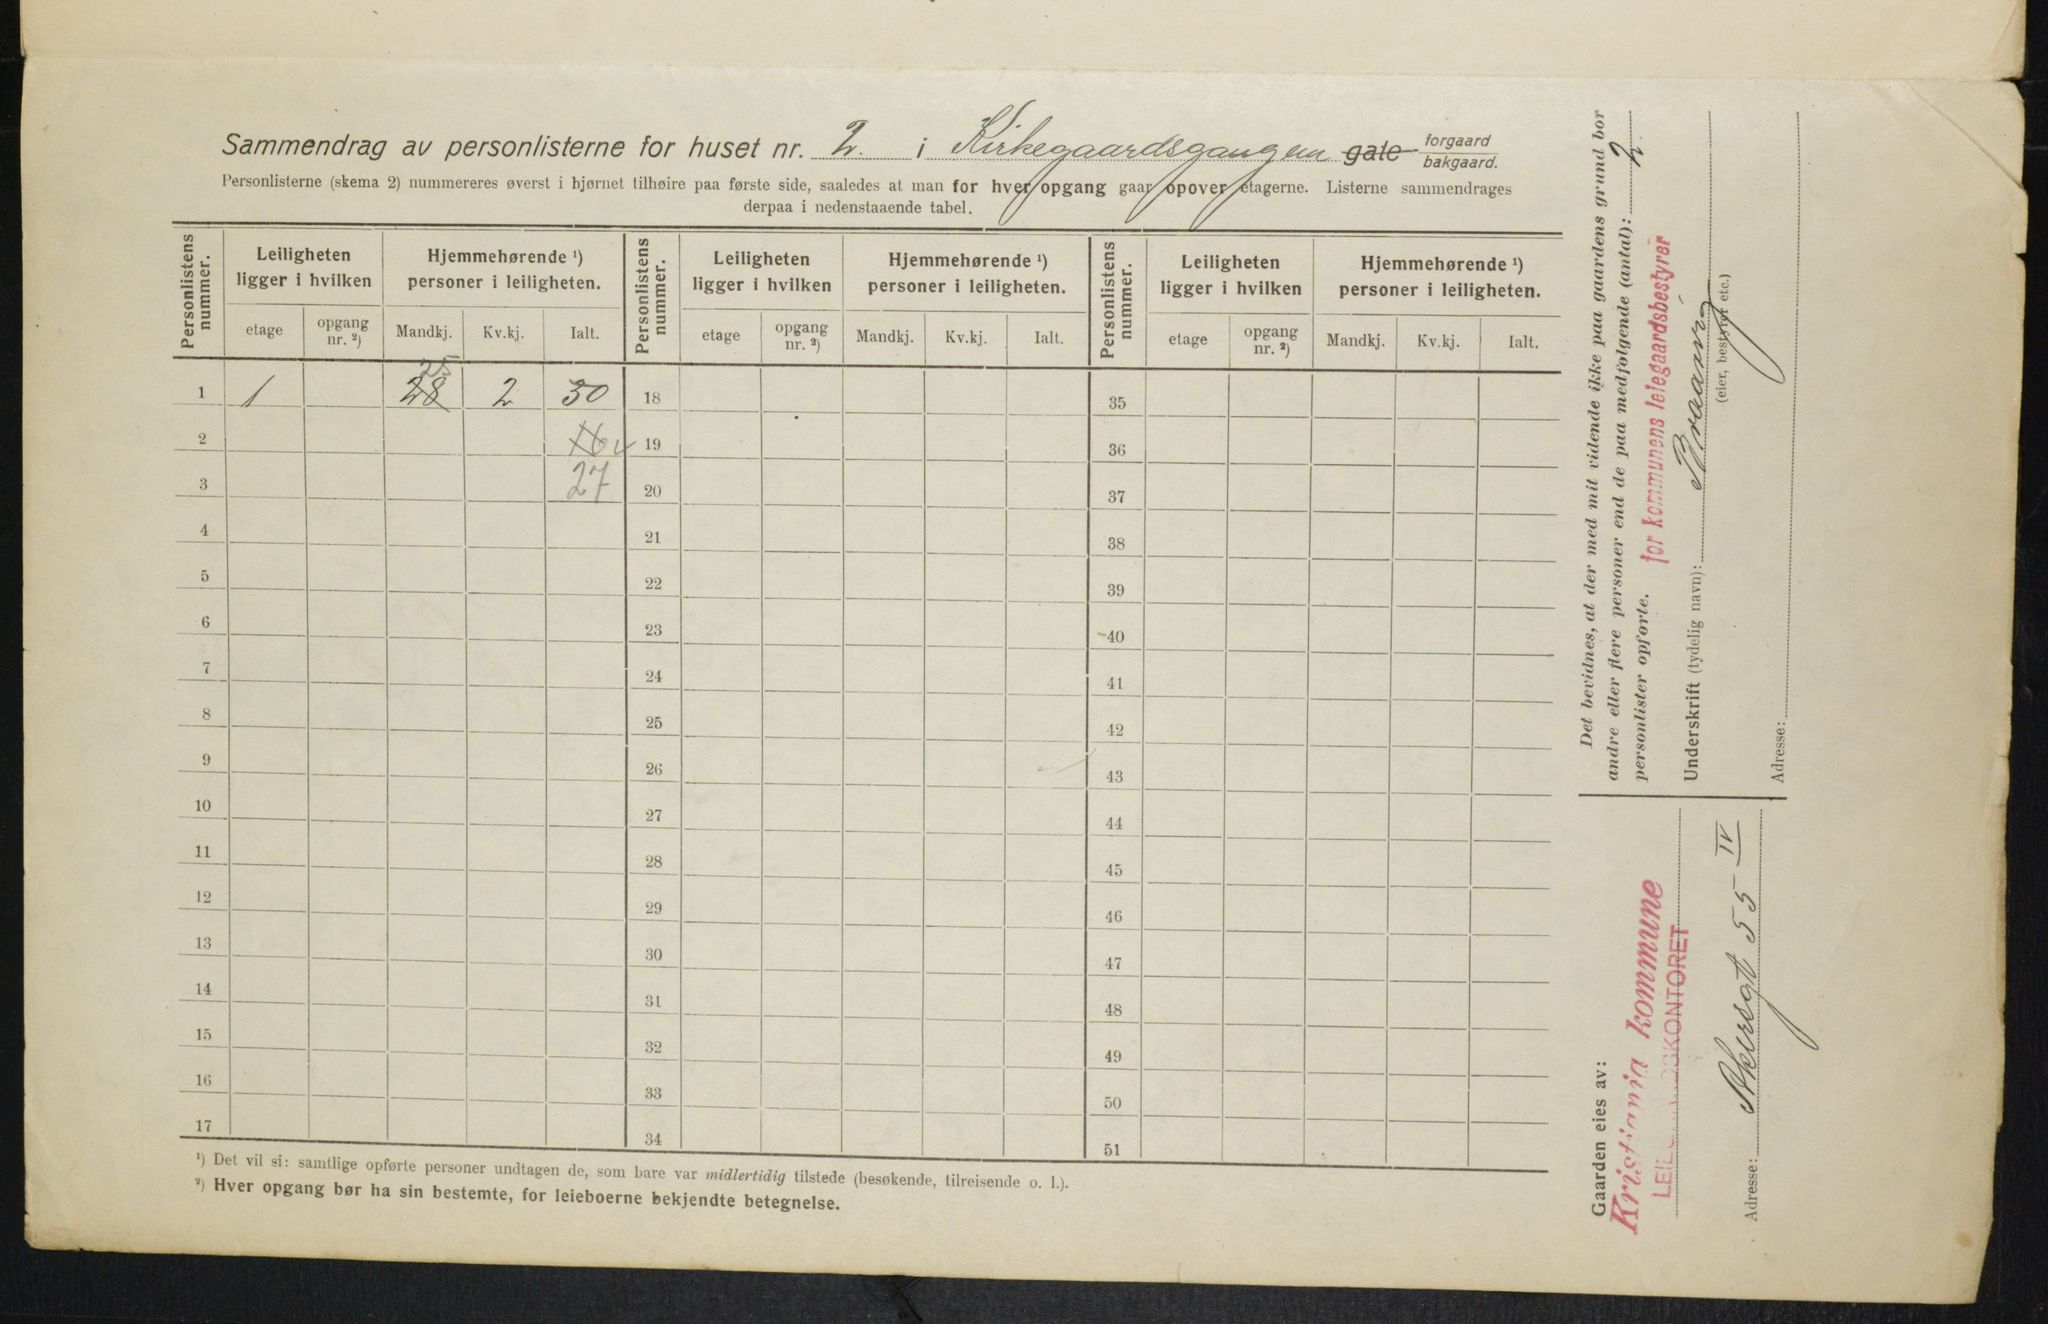 Sammendrag av personlisterne for huset nr. 2. i Kirkegaardsgangen gate forgaard bakgaard.
Personlisterne (skema 2) nummereres øverst i hjørnet tilhøire paa første side, saaledes at man for hver opgang gaar opover etagerne. Listerne sammendrages
derpaa i nedenstaaende tabel.
Personlistens nummer. Leiligheten ligger i hvilken Hjemmehørende ¹) personer i leiligheten. Personlistens nummer. Leiligheten ligger i hvilken Hjemmehørende ¹) personer i leiligheten. Personlistens nummer. Leiligheten ligger i hvilken Hjemmehørende ¹) personer i leiligheten.
etage opgang nr. ²) Mandkj. Kv.kj. Ialt. etage opgang nr. ²) Mandkj. Kv.kj. Ialt. etage opgang nr. ²) Mandkj. Kv.kj. Ialt.
25
1 1 28 2 30 18 35
2 16 19 36
3 27 20 37
4 21 38
5 22 39
6 23 40
7 24 41
8 25 42
9 26 43
10 27 44
11 28 45
12 29 46
13 30 47
14 31 48
15 32 49
16 33 50
17 34 51
¹) Det vil si: samtlige opførte personer undtagen de, som bare var midlertidig tilstede (besøkende, tilreisende o. l.).
²) Hver opgang bør ha sin bestemte, for leieboerne bekjendte betegnelse.
Det bevidnes, at der med mit vidende ikke paa gaardens grund bor
andre eller flere personer end de paa medfølgende (antal): 2
personlister opførte. for kommunens leiegaardsbestyrer
Underskrift (tydelig navn):
(eier, bestyrer etc.)
Adresse:
Gaarden eies av:
Kristiania kommune
Adresse: Akersgt 55 IV